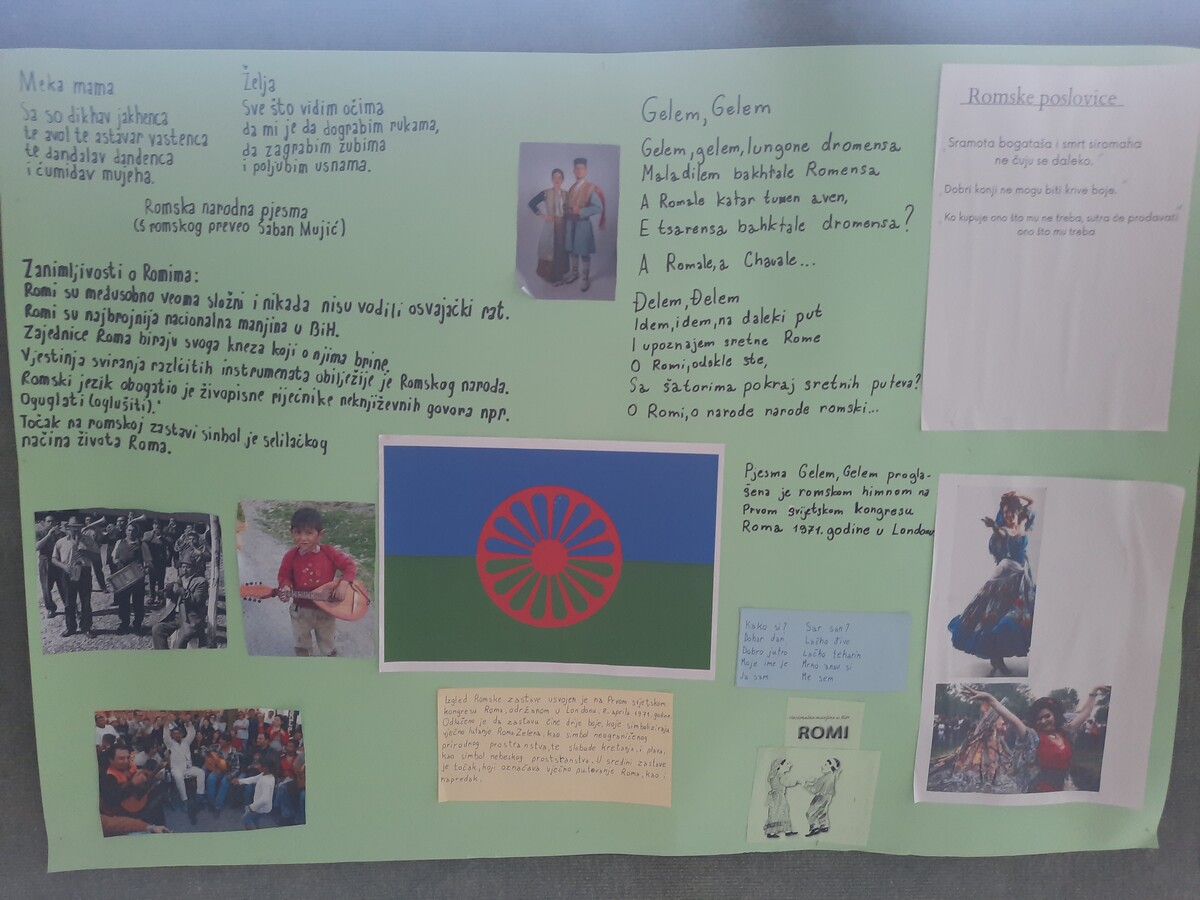 Meka mama
Sa so dikhav jakhenca
te avol te astavar vastenca
te dandalav dandenca
i ćumidav mujeha.
Želja
Sve što vidim očima
da mi je da dograbim rukama,
da zagrabim zubima
i poljubim usnama.
Romska narodna pjesma
(S romskog preveo Šaban Mujić)
Zanimljivosti o Romima:
Romi su međusobno veoma složni i nikada nisu vodili osvajački rat.
Romi su najbrojnija nacionalna manjina u BiH.
Zajednice Roma biraju svoga kneza koji o njima brine.
Vjestinja sviranja različitih instrumenata obilježije je Romskog naroda.
Romski jezik obogatio je živopisne riječnike neknjiževnih govora npr.
Oguglati (oglušiti).
Točak na romskoj zastavi sinbol je selilačkog
načina života Roma.
Gelem, Gelem
Gelem, gelem, lungone dromensa
Maladilem bakhtale Romensa
A Romale katar tumen aven,
E tsarensa bahktale dromensa?
A Romale, a Chavale...
Đelem, Đelem
Idem, idem, na daleki put
I upoznajem sretne Rome
O Romi, odakle ste,
Sa šatorima pokraj sretnih puteva?
O Romi, o narode narode romski...
Pjesma Gelem, Gelem progla-
šena je romskom himnom na
Prvom svjetskom kongresu
Roma 1971. godine u Londonu
Romske poslovice
Sramota bogataša i smrt siromaha
ne čuju se daleko.
Dobri konji ne mogu biti krive boje.
Ko kupuje ono što mu ne treba, sutra će prodavati
ono što mu treba
Kako si? Sar san?
Dobar dan
Dobro jutro Lačho teharin
Moje ime je Mrno anav si
Ja sam Me sem
Izgled Romske zastave usvojen je na Prvom svjetskom
kongresu Roma, održanom u Londonu, 8. aprila 1971. godine.
Odlučeno je da zastavu čine dvije boje, koje simboliziraju
vječno lutanje Roma. Zelena, kao simbol neograničenog
prirodnog prostranstva, te slobode kretanja, i plava,
kao simbol nebeskog prostranstva. U sredini zastave
je točak, koji označava vječno putovanje Roma, kao i
napredak.
nacionalne manjine u BiH
ROMI